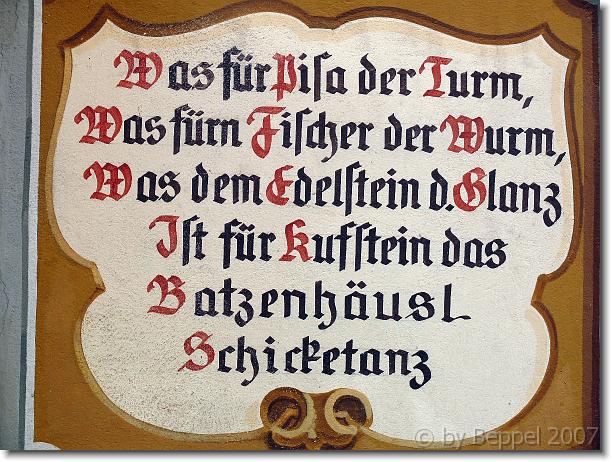 Was für Pisa der Turm,
Was fürn Fischer der Wurm,
Was dem Edelstein d. Glanz
Ist für Kufstein das
Batzenhäusl
Schicketanz
© by Beppel 2007